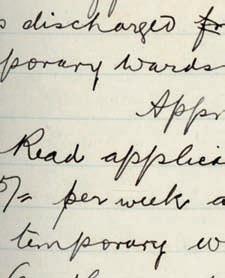 s discharged fr
porary wards
Appr
Read applica
5/= per week a
temporary w